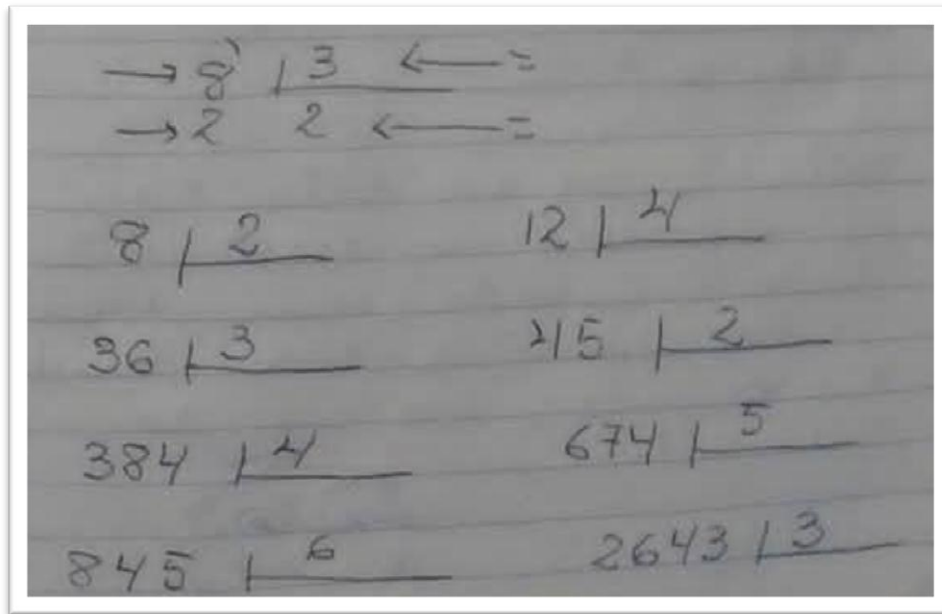 → 8 3 ← =
→ 2 2 ← =
8 2 12 4
36 3 45 2
384 4 674 5
845 6 2643 3